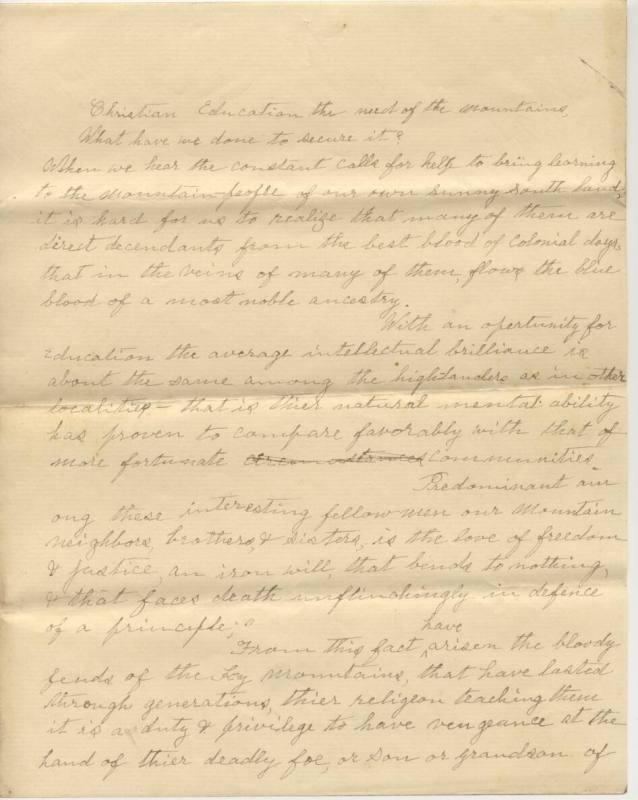 Christian Education the need of the Mountains,
What have we done to secure it?
When we hear the constant calls for help to bring learning
to the Mountain people of our own sunny South land,
it is hard for us to realize that many of them are
direct decendants from the best blood of Colonial days,
that in the veins of many of them, flows the blue
blood of a most noble ancestry.
With an opertunity for
Education the average intellectual brilliance is
about the same among the "highlanders as in other
localities - that is thier natural mental ability
has proven to compare favorably with that of
more fortunate circumstances communities
Predominant am
ong these interesting fellow men our Mountain
neighbors, brothers, & sisters, is the love of freedom
& justice, an iron will, that bends to nothing,
& that faces death unflinchingly in defence
of a principle;
have
From this fact ^ arisen the bloody
feuds of the Ky Mountains, that have lasted
through generations, thier religion teaching them
it is a duty & privilege to have vengeance at the
hand of thier deadly foe, or son or grandson of